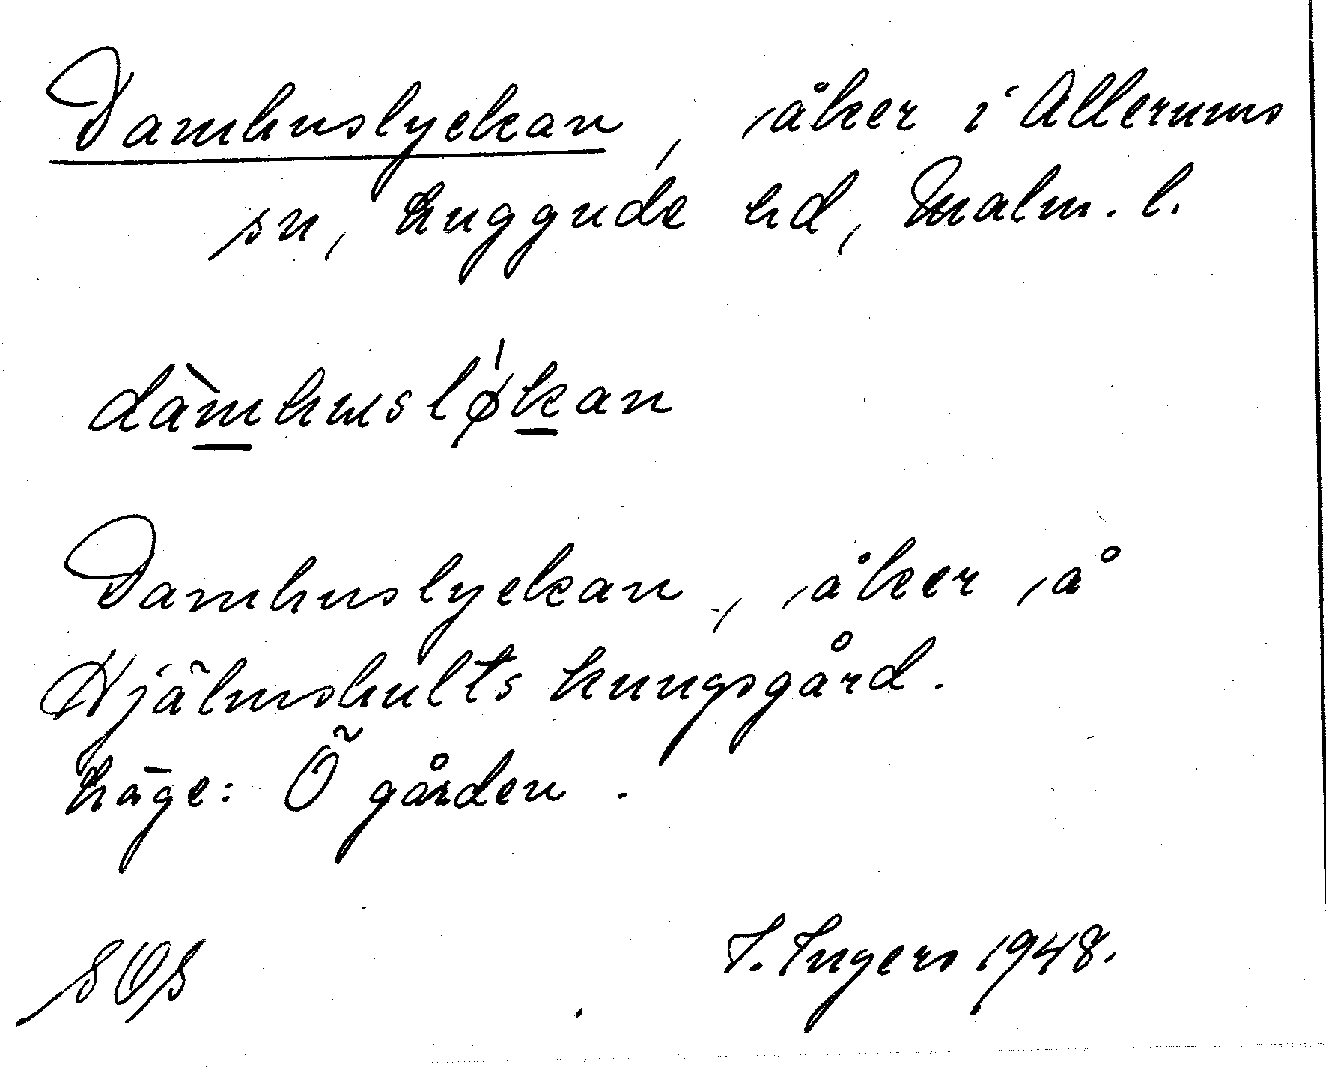 Damhuslyckan, åker i Allerums
sn, Luggude hd, Malm. l.
dàmhusløkan
Damhuslyckan, åker å
Hjälmshults kungsgård.
Läge: Ö gården.
SOS
I. Ingers 1948.